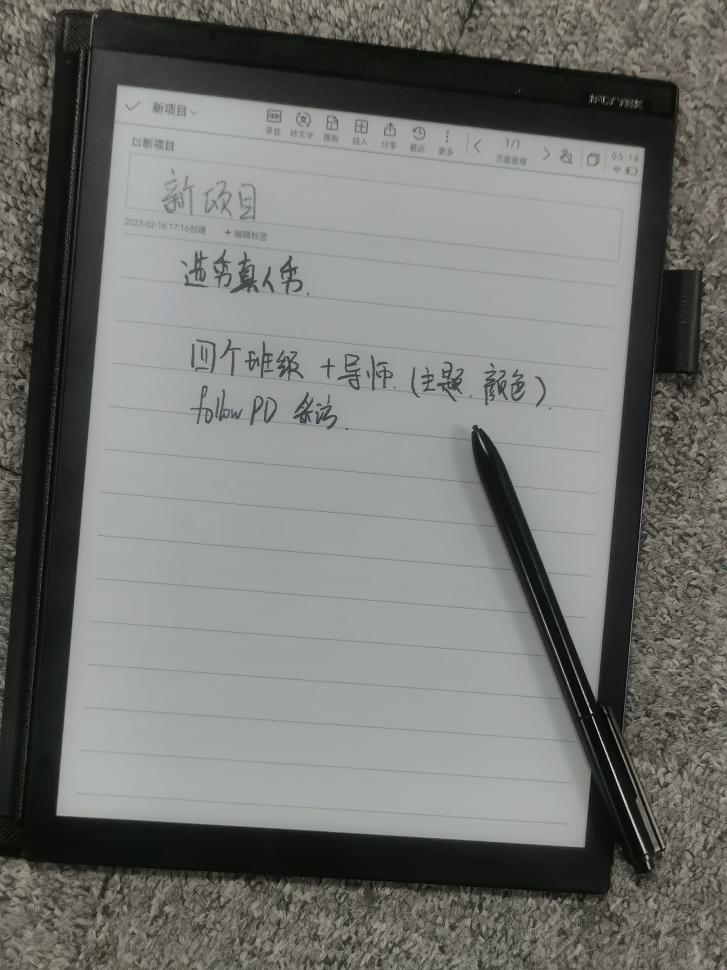 iFLYTEK
新项目
录音 转文字 模板 插入 分享 最近 更多
1/1
页面管理
05:18
新项目
新项目
2023-02-16 17:16创建 +编辑标签
选秀真人秀.
四个班级 +导师.(主题.颜色).
follow PD 采访.